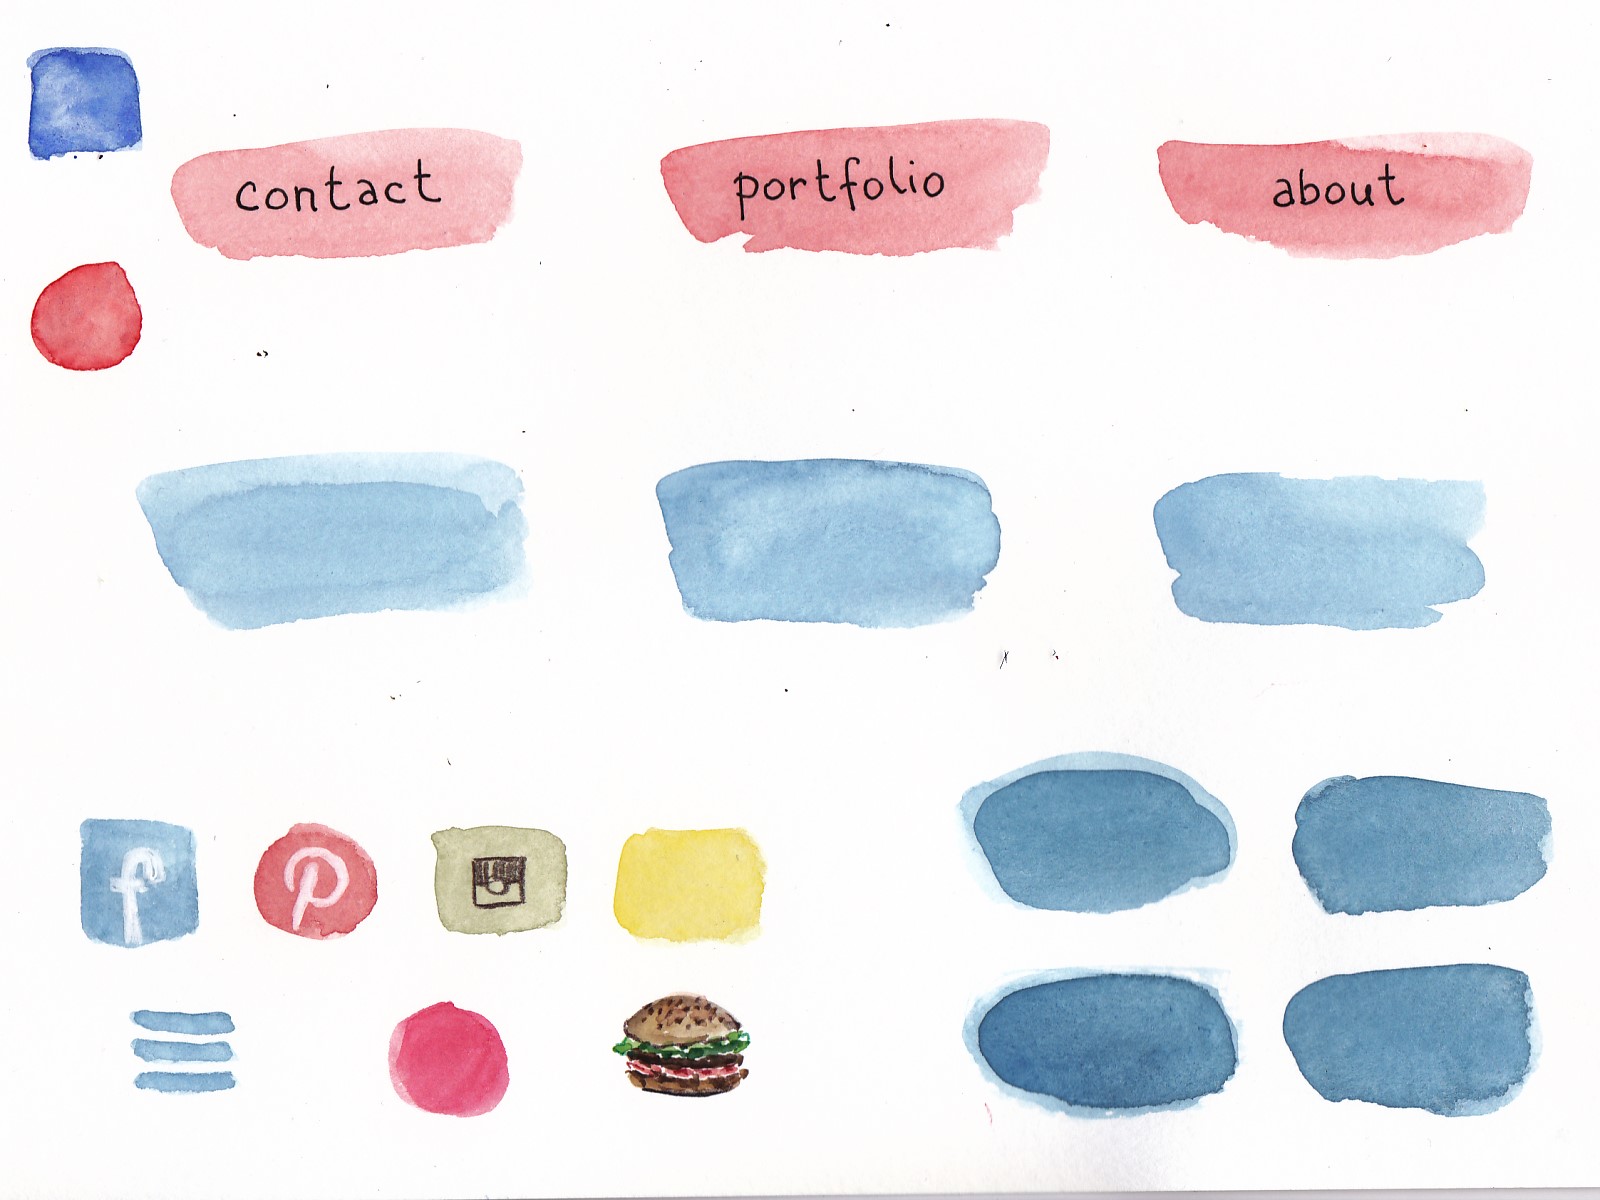 contact
portfolio
about
f
P